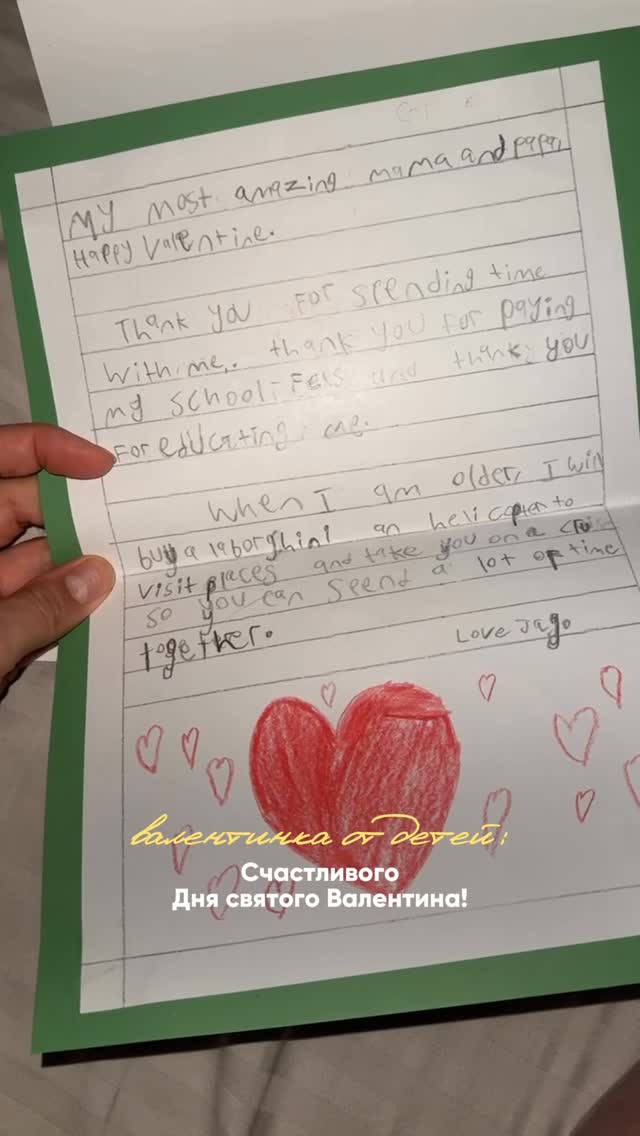 My most amazing mama and papa,
Happy Valentine.
Thank you for spending time
with me. thank you for paying
my school fees and thank you
for educating me.
When I am older, I will
buy a laborghini an helicopter to
visit places and take you on a
so you can spend a lot of time
together.
Love Jago
валентинка от детей:
Счастливого
Дня святого Валентина!